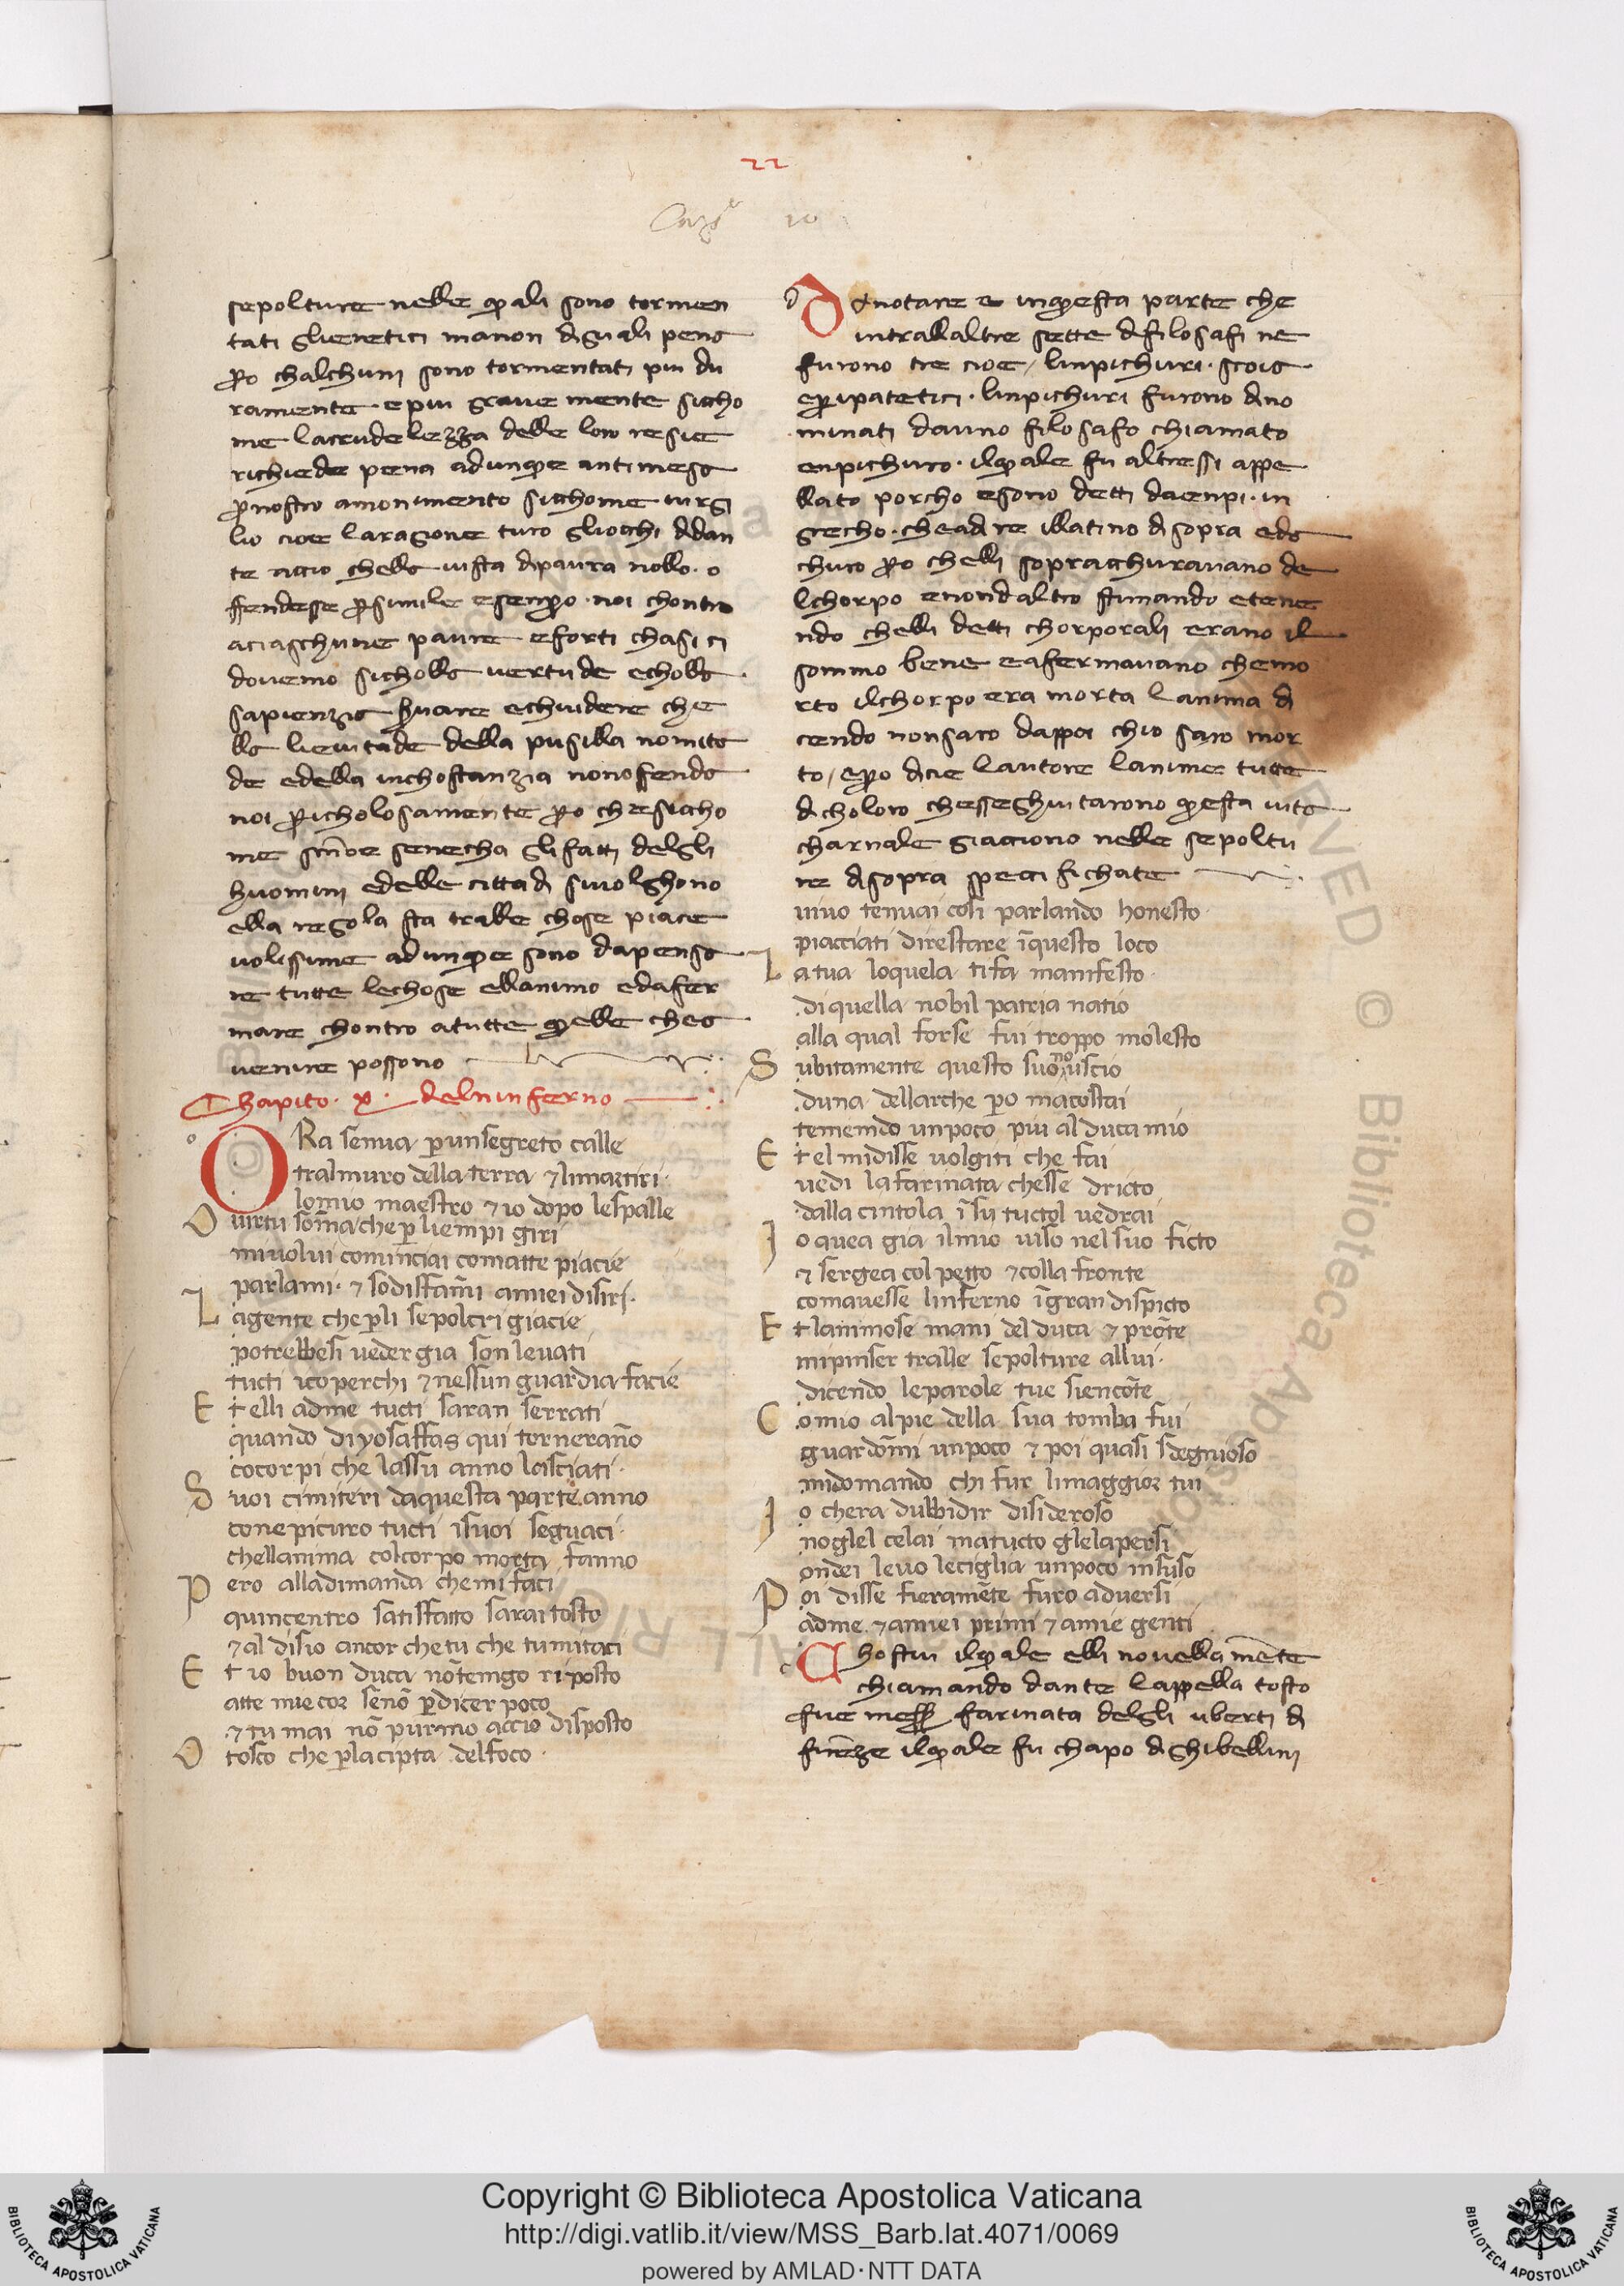 22
Capº 10
sepolture nelle quali sono tormen
tati glieretici manon digiuali pena
pero chalchuni sono tormentati piu du
ramente · e piu grave mente siccho
me lacrudelezza delle loro resie
richiede pena adunque antimesso
pronostro amonimento sicchome virgi
lio cioe laragione turo gliocchi didan
te accio chella vista dipaura nollo · o
ffendesse persimile esenpro · noi chontro
aciaschune paure eforti chasi ci
dovemo sicholla vertude echolla
sapienzia chiudere che
lla lievitade della pusilla nomita
de edella inchostanzia nonoffenda
noi pericholosamente pero chesiccho
me scrive senecha gli fatti delgli
huomini edelle cittadi sivolghono
ella regola sta tralle chose piacie
volissime adunque sono dapensa
re tutte lechose ellanimo edafer
mare chontro atutte quelle chea
venire possono
Chapito · x · delninferno
ORa senva per unsegreto calle
tralmuro della terra ⁊ limartiri ·
lomio maestro ⁊ io dopo lespalle
O virtu som̄a che per liempi giri
mivolvi cominciai comatte piacie
parlami · ⁊ sodisfam̄i amiei disiri ·
L agente che perli sepolcri giacie
potrebbesi veder gia son levati
tucti icoperchi ⁊ nessun guardia facie
E t elli adme tucti saran serrati
quando di yosaffas qui torneran̄o
cocorpi che lassu anno lasciati ·
S uoi cimiteri daquesta parte anno
conepicuro tucti isuoi seguaci ·
chellanima colcorpo morta fanno
P ero alladimanda chemi faci
quincentro satisfatto sarai tosto
⁊ al disio ancor chetu che tumitaci
E t io buon duca nōtemgo riposto
atte mie cor senō perdicer poco
⁊ tu mai nō purmo accio disposto
O tosco che perlacipta delfoco ·
d Dinotare e inquesta parte che
intrallaltre sette difilosafi ne
furono tre cioe / linpichuri · stoia
eperipatetici · linpichuri furono dino
minati dauno filosafo chiamato
enpichuro · ilquale fu altressi appe
llato porcho esono detti daenpi · in
grecho · cheadire illatino disopra eda
churo pero chelli sopracchuravano de
lchorpo enondaltro stimando etene
ndo chelli detti chorporali erano il
sommo bene eafermavano chemo
rto ilchorpo era morta lanima di
cendo nonsaro dappoi chio saro mor
to / epero dicie lautore lanime tutte
dicholoro chesseghuitarono questa vita
charnale giacciono nelle sepoltu
re disopra speccifichate
vivo tenvai cosi parlando honesto ·
piacciati direstare īquesto loco
L a tua loquela tifa manifesto ·
di quella nobil patria natio
alla qual forse fui troppo molesto
S ubitamente questo suono uscio
duna dellarche pero macostai
temendo unpoco piu al duca mio
E t el midisse volgiti che fai
vedi la farinata chesse dricto
dalla cintola īsu tuctol vedrai
I o avea gia ilmio viso nel suo ficto
⁊ sergea col petto ⁊ colla fronte
comavesse linferno īgran dispicto
E t lanimose mani del duca ⁊ prōte
mipinser tralle sepolture allui ·
dicendo leparole tue siencōte
C omio alpie della sua tomba fui
guardōmi unpoco ⁊ poi quasi sdegnioso
midomando chi fur limaggior tui
I o chera dubbidir disideroso
noglel celai matucto glelapersi
ondei levo leciglia unpoco insuso
P oi disse fieramēte furo adversi
adme ⁊ amiei primi ⁊ amie genti
c Chostui ilquale elli novellamēte
chiamando dante lappella tosto
fue messer farinata delgli uberti di
firēze ilquale fu chapo dighibellini
Copyright © Biblioteca Apostolica Vaticana
http://digi.vatlib.it/view/MSS_Barb.lat.4071/0069
powered by AMLAD·NTT DATA
BIBLIOTECA APOSTOLICA VATICANA
BIBLIOTECA APOSTOLICA VATICANA